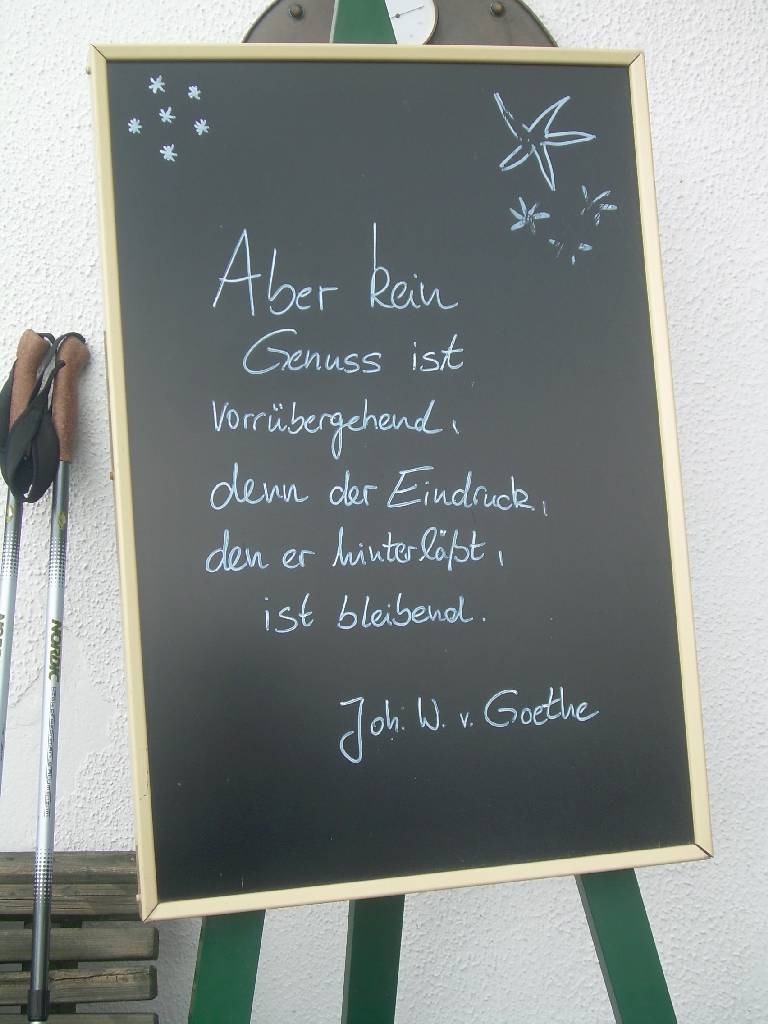 Aber kein
Genuss ist
vorrübergehend,
denn der Eindruck,
den er hinterläßt,
ist bleibend.
Joh. W. v. Goethe
NORDIC